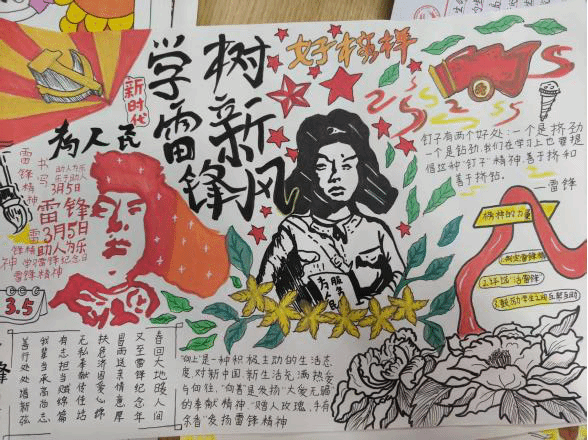 好榜样
学雷锋
树新风
新时代
为人民
雷锋精神
书写
助人为乐
乐于助人
3月5日
雷锋
3月5日
助人为乐
学习雷锋纪念日
雷锋精神
3.5
为人民
服务
钉子有两个好处:一个是挤劲
一个是钻劲,我们在学习上也要提
倡这种"钉子"精神,善于挤和
善于钻。
——雷锋
精神的力量
2.环保活雷锋
3.鼓励学生之间互帮互助
春回大地暖人间
又至雷锋纪念年
冒雨送亲情意厚
扶危济困爱心绵
无私奉献传佳话
有志担当赋锦篇
我辈当承高尚志
善行处处谱新弦
"向上"是一种积极主动的生活态
度,对新中国、新生活充满热爱
与向往,"向善"是发扬"大爱无疆"
的奉献精神,"赠人玫瑰,手有
余香"发扬雷锋精神